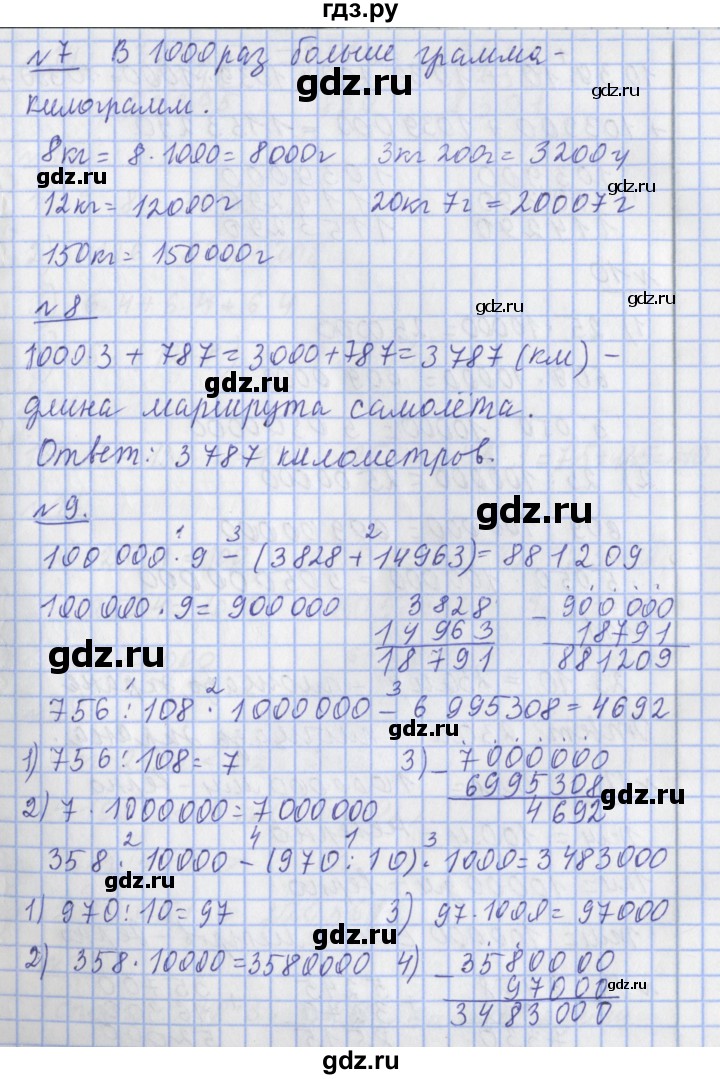 гдз.ру
№7 В 1000 раз больше грамма -
gdz.ru
gdz.ru
килограмм.
8кг = 8·1000 = 8000г 3кг 200г = 3200г
gdz.ru
gdz.ru
12кг = 12000г 20кг 7г = 20007г
150кг = 150000г
№8
gdz.ru
gdz.ru
1000·3 + 787 = 3000+787 = 3787 (км) -
gdz.ru
длина маршрута самолёта.
Ответ: 3787 километров.
№9.
gdz.ru
1 3 2
100 000 · 9 - (3828 + 14963) = 881209
100 000 · 9 = 900 000 3828 - 900 000
14 963 18791
gdz.ru
18791 881209
1 2 3
756 : 108 · 1000000 - 6 995308 = 4692
gdz.ru
1) 756 : 108 = 7 3) - 7000000
6995308
gdz.ru
2) 7 · 1000000 = 7000000 4692
2 4 1 3
358 · 10000 - (970 : 10) · 1000 = 3483000
gdz.ru
1) 970 : 10 = 97 3) 97·1000 = 97000
gdz.ru
2) 358 · 10000 = 3580000 4) - 3580000
97000
gdz.ru
3483000
gdz.ru